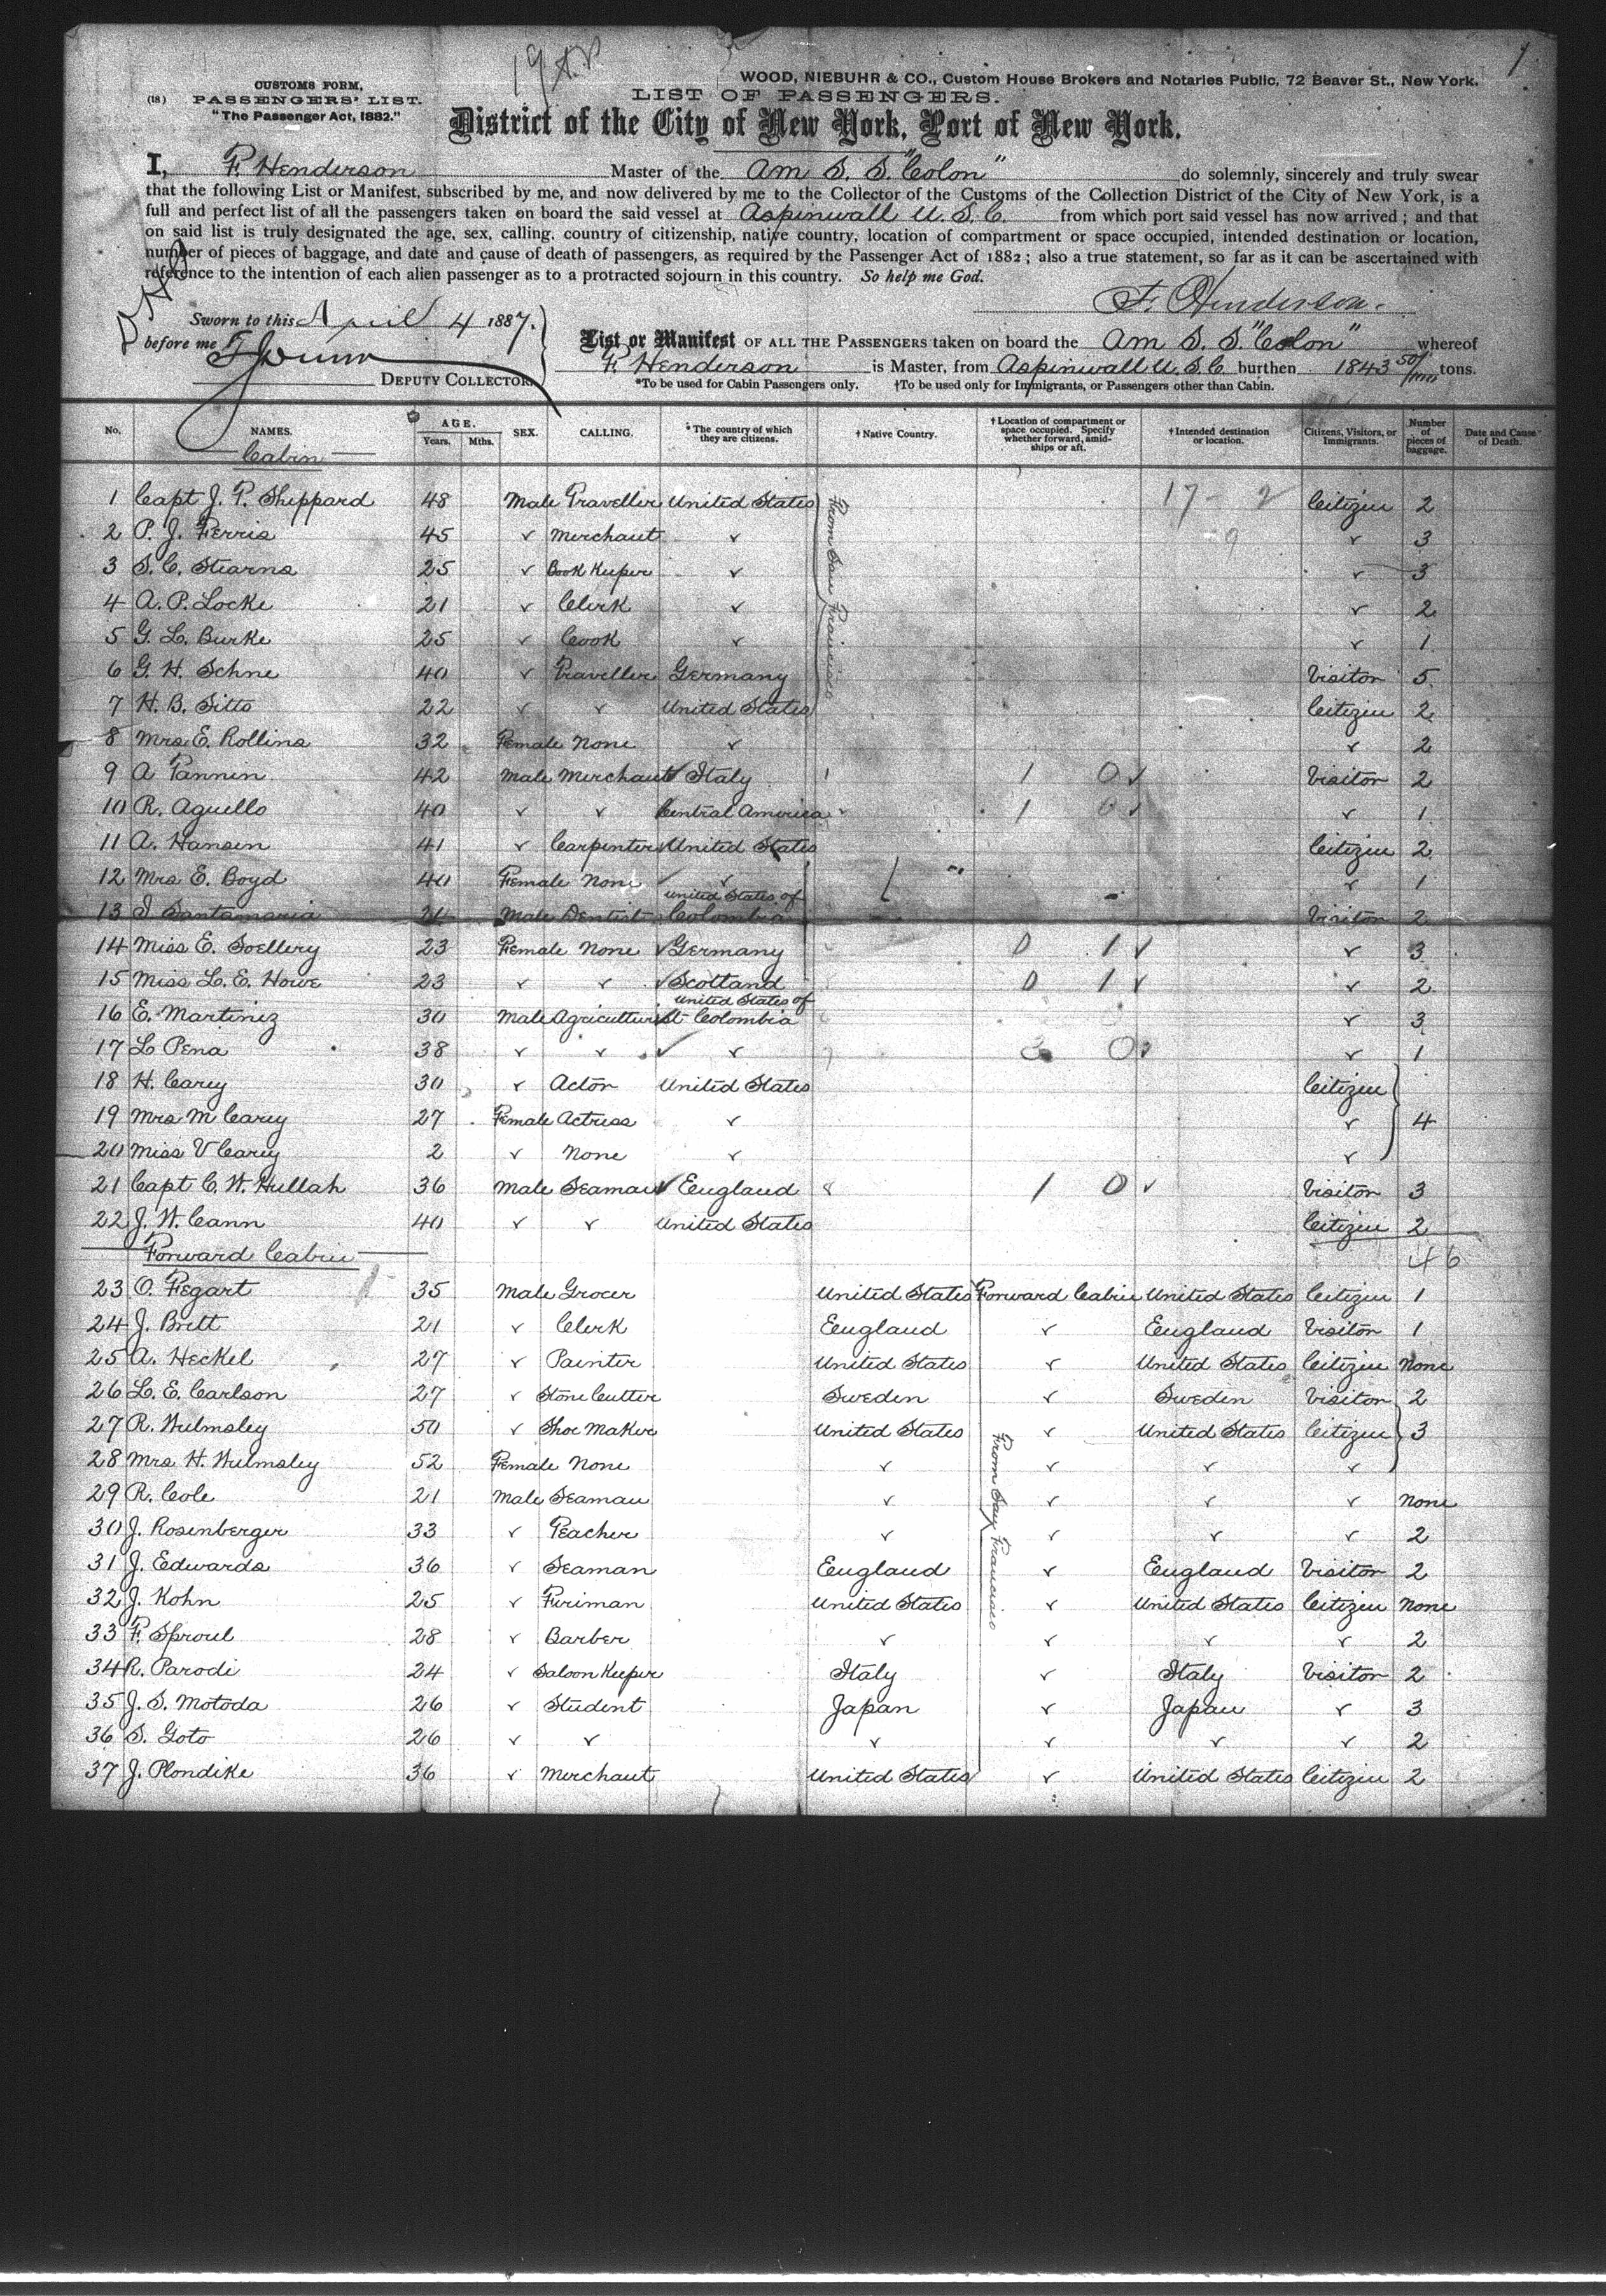 WOOD, NIEBUHR & CO., Custom House Brokers and Notaries Public, 72 Beaver St., New York.
CUSTOMS FORM,
(18) PASSENGERS' LIST.
"The Passenger Act, 1882."
LIST OF PASSENGERS.
District of the City of New York, Port of New York.
I, F. Henderson Master of the Am S. S. "Colon" do solemnly, sincerely and truly swear
that the following List or Manifest, subscribed by me, and now delivered by me to the Collector of the Customs of the Collection District of the City of New York, is a
full and perfect list of all the passengers taken on board the said vessel at Aspinwall U. S. C. from which port said vessel has now arrived; and that
on said list is truly designated the age, sex, calling, country of citizenship, native country, location of compartment or space occupied, intended destination or location,
number of pieces of baggage, and date and cause of death of passengers, as required by the Passenger Act of 1882; also a true statement, so far as it can be ascertained with
reference to the intention of each alien passenger as to a protracted sojourn in this country. So help me God.
F. Henderson.
Sworn to this April 4 1887.
before me
DEPUTY COLLECTOR.
List or Manifest OF ALL THE PASSENGERS taken on board the Am S. S "Colon" whereof
F. Henderson is Master, from Aspinwall U. S. C burthen 1843 50/100 tons.
*To be used for Cabin Passengers only. †To be used only for Immigrants, or Passengers other than Cabin.
No. NAMES. AGE. Years. Mths. SEX. CALLING. *The country of which they are citizens. †Native Country. †Location of compartment or space occupied. Specify whether forward, amidships or aft. †Intended destination or location. Citizens, Visitors, or Immigrants. Number of pieces of baggage. Date and Cause of Death.
Cabin
1 Capt J. P. Sheppard 48 Male Traveller United States Citizen 2
2 P. J. Ferris 45 ✓ Merchant ✓ ✓ 3
3 S. C. Stearns 25 ✓ Book Keeper ✓ ✓ 3
4 A. P. Locke 21 ✓ Clerk ✓ ✓ 2
5 G. L. Burke 25 ✓ Cook ✓ ✓ 1
6 G. H. Schne 40 ✓ Traveller Germany Visitor 5
7 H. B. Sitto 22 ✓ ✓ United States Citizen 2
8 Mrs E. Rollins 32 Female None ✓ ✓ 2
9 A Tannin 42 Male Merchant Italy 1 0 ✓ Visitor 2
10 R. Aguello 40 ✓ ✓ Central America 1 0 ✓ ✓ 1
11 A. Hansen 41 ✓ Carpenter United States Citizen 2
12 Mrs E. Boyd 40 Female None ✓ ✓ 1
13 I Santamaria 24 Male Dentist United States of Colombia Visitor 2
14 Miss E. Soellery 23 Female None Germany 0 1 ✓ ✓ 3
15 Miss L. E. Howe 23 ✓ ✓ Scotland 0 1 ✓ ✓ 2
16 E. Martinez 30 Male Agriculturist United States of Colombia ✓ 3
17 L Pena 38 ✓ ✓ ✓ 3 0 ✓ ✓ 1
18 H. Carey 30 ✓ Actor United States Citizen
19 Mrs M Carey 27 Female Actress ✓ ✓ 4
20 Miss V Carey 2 ✓ None ✓ ✓
21 Capt C. W. Hullah 36 Male Seaman England 8 1 0 ✓ Visitor 3
22 J. W. Cann 40 ✓ ✓ United States Citizen 2
From San Francisco
46
Forward Cabin
23 O. Fegart 35 Male Grocer United States Forward Cabin United States Citizen 1
24 J. Britt 21 ✓ Clerk England ✓ England Visitor 1
25 A. Heckel 27 ✓ Painter United States ✓ United States Citizen None
26 L. E. Carlson 27 ✓ Stone Cutter Sweden ✓ Sweden Visitor 2
27 R. Wulmsley 50 ✓ Shoe Maker United States ✓ United States Citizen 3
28 Mrs H. Wulmsley 52 Female None ✓ ✓ ✓ ✓
29 R. Cole 21 Male Seaman ✓ ✓ ✓ ✓ None
30 J. Rosenberger 33 ✓ Teacher ✓ ✓ ✓ ✓ 2
31 J. Edwards 36 ✓ Seaman England ✓ England Visitor 2
32 J. Kohn 25 ✓ Fireman United States ✓ United States Citizen None
33 F. Sproul 28 ✓ Barber ✓ ✓ ✓ ✓ 2
34 R. Parodi 24 ✓ Saloon Keeper Italy ✓ Italy Visitor 2
35 J. S. Motoda 26 ✓ Student Japan ✓ Japan ✓ 3
36 S. Goto 26 ✓ ✓ ✓ ✓ ✓ ✓ 2
37 J. Plondike 36 ✓ Merchant United States ✓ United States Citizen 2
From San Francisco